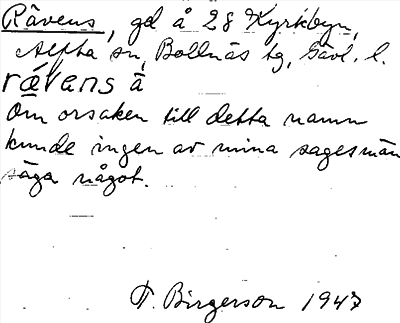 Rävens, gd å 28 Kyrkbyn,
Alfta sn, Bollnäs tg, Gävl. l.
rævens å
Om orsaken till detta namn
kunde ingen av mina sagesmän
säga något.
T. Birgerson 1947